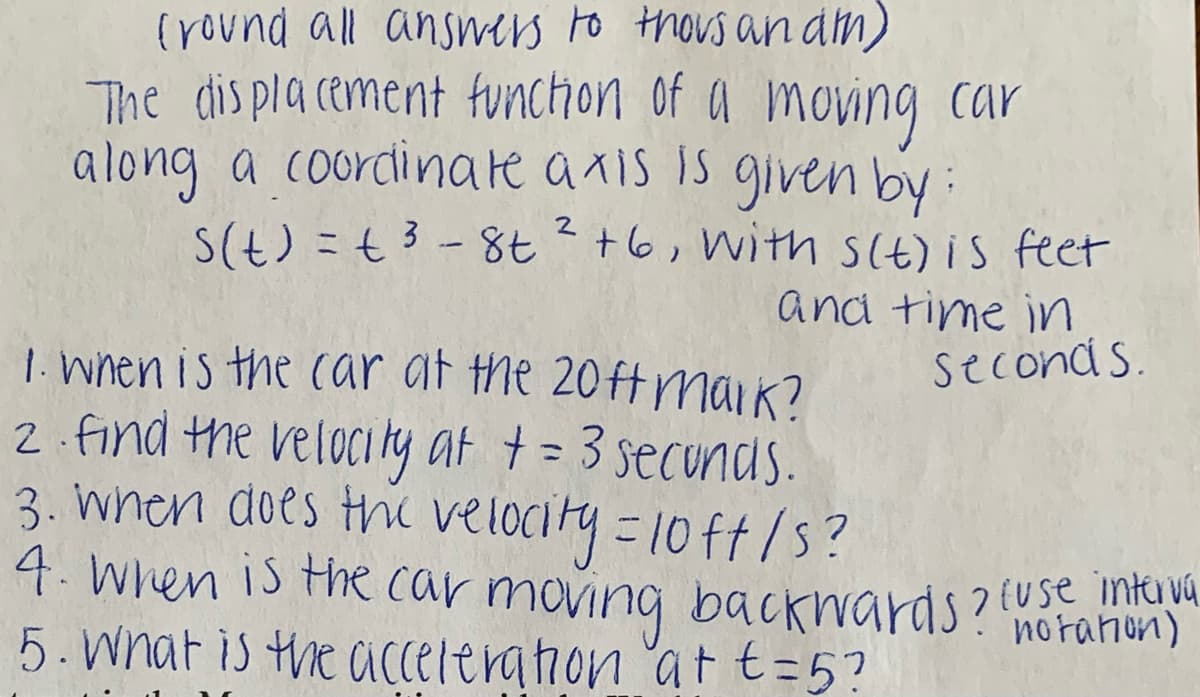 (round all answers to thousandth)
The displacement function of a moving car
along a coordinate axis is given by:
s(t) = t³ - 8t² + 6, with s(t) is feet
and time in
seconds.
1. when is the car at the 20ft mark?
2. find the velocity at t = 3 seconds.
3. when does the velocity = 10 ft/s?
4. when is the car moving backwards? (use interva
notation)
5. what is the acceleration at t=5?